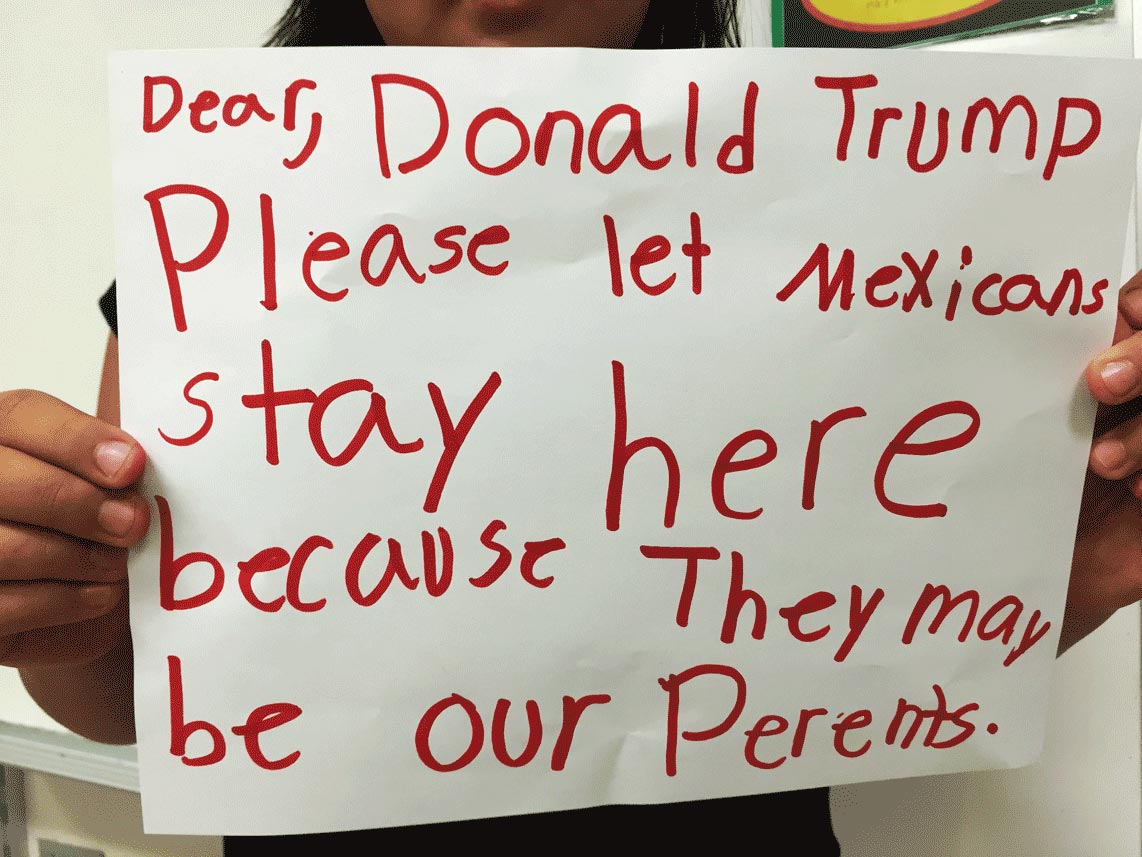 Dear, Donald Trump
Please let Mexicans
stay here
because They may
be our Perents.